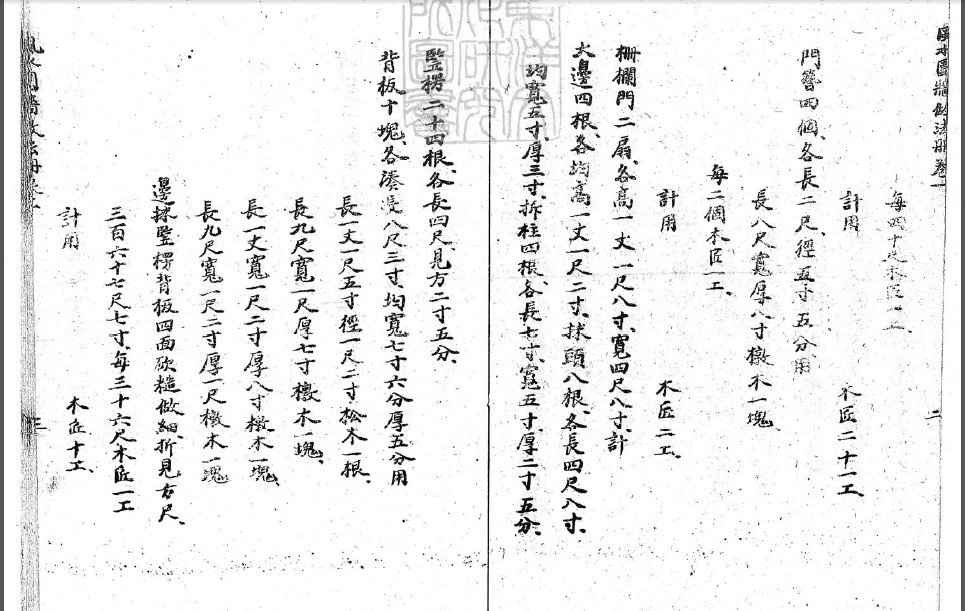 風水圍牆做法冊卷一
二
每四十
計用　木匠二十一工、
門簪四個、各長二尺、徑五寸五分、用
長八尺寬厚八寸樴木一塊
每二個木匠一工、
計用　木匠二工、
柵欄門二扇、各高一丈一尺八寸、寬四尺八寸、計
大邊四根、各均高一丈一尺二寸、抹頭八根、各長四尺八寸、
均寬五寸、厚三寸、拆柱四根、各長七寸、寬五寸、厚二寸五分、
豎楞二十四根、各長四尺、見方二寸五分、
背板十塊、各湊長八尺三寸、均寬七寸六分厚五分用
長一丈一尺五寸徑一尺二寸松木一根、
長九尺寬一尺厚七寸樴木一塊、
長一丈寬一尺二寸厚八寸樴木一塊、
長九尺寬一尺二寸厚一尺樴木一塊
邊抹豎楞背板四面砍糙做細、折見方尺、
三百六十七尺七寸、每三十六尺木匠一工
計用　木匠十工、
三